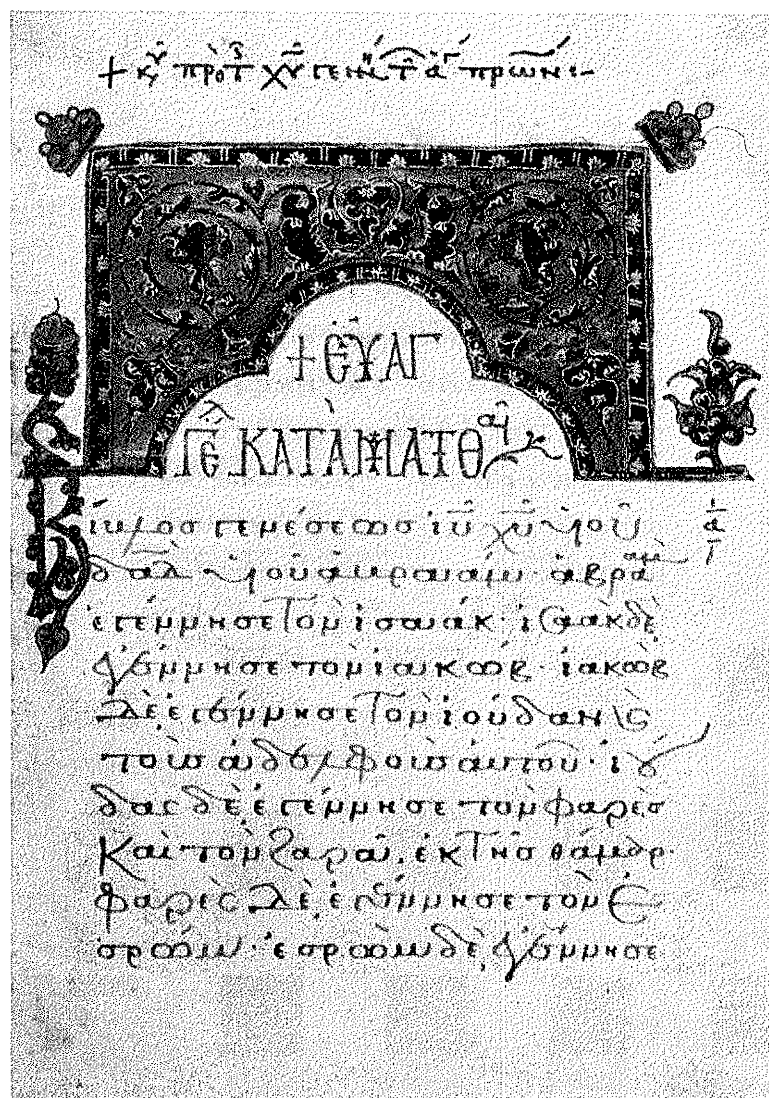 + ΕΥΑΓ
ΓΕΛ ΚΑΤΑ ΜΑΤΘΑΙ
Βίβλοσ γενέσεωσ ἰῦ χῦ ὑιοῦ
δαδ ὑιοῦ ἀβραάμ· ἀβραὰμ
ἐγέννησε τὸν ἰσαάκ· ἰσαὰκ δὲ
ἐγέννησε τὸν ἰακώβ· ἰακὼβ
δὲ ἐγέννησε τὸν ἰούδαν κ
τοὺσ ἀδελφοὺσ ἀυτοῦ· ἰού
δας δὲ ἐγέννησε τὸν φαρὲσ
Καὶ τὸν ζαρὰ, ἐκ τῆσ θάμαρ·
φαρὲς δὲ ἐγέννησε τὸν ἐ
σρώμ· ἐσρὼμ δὲ ἐγέννησε